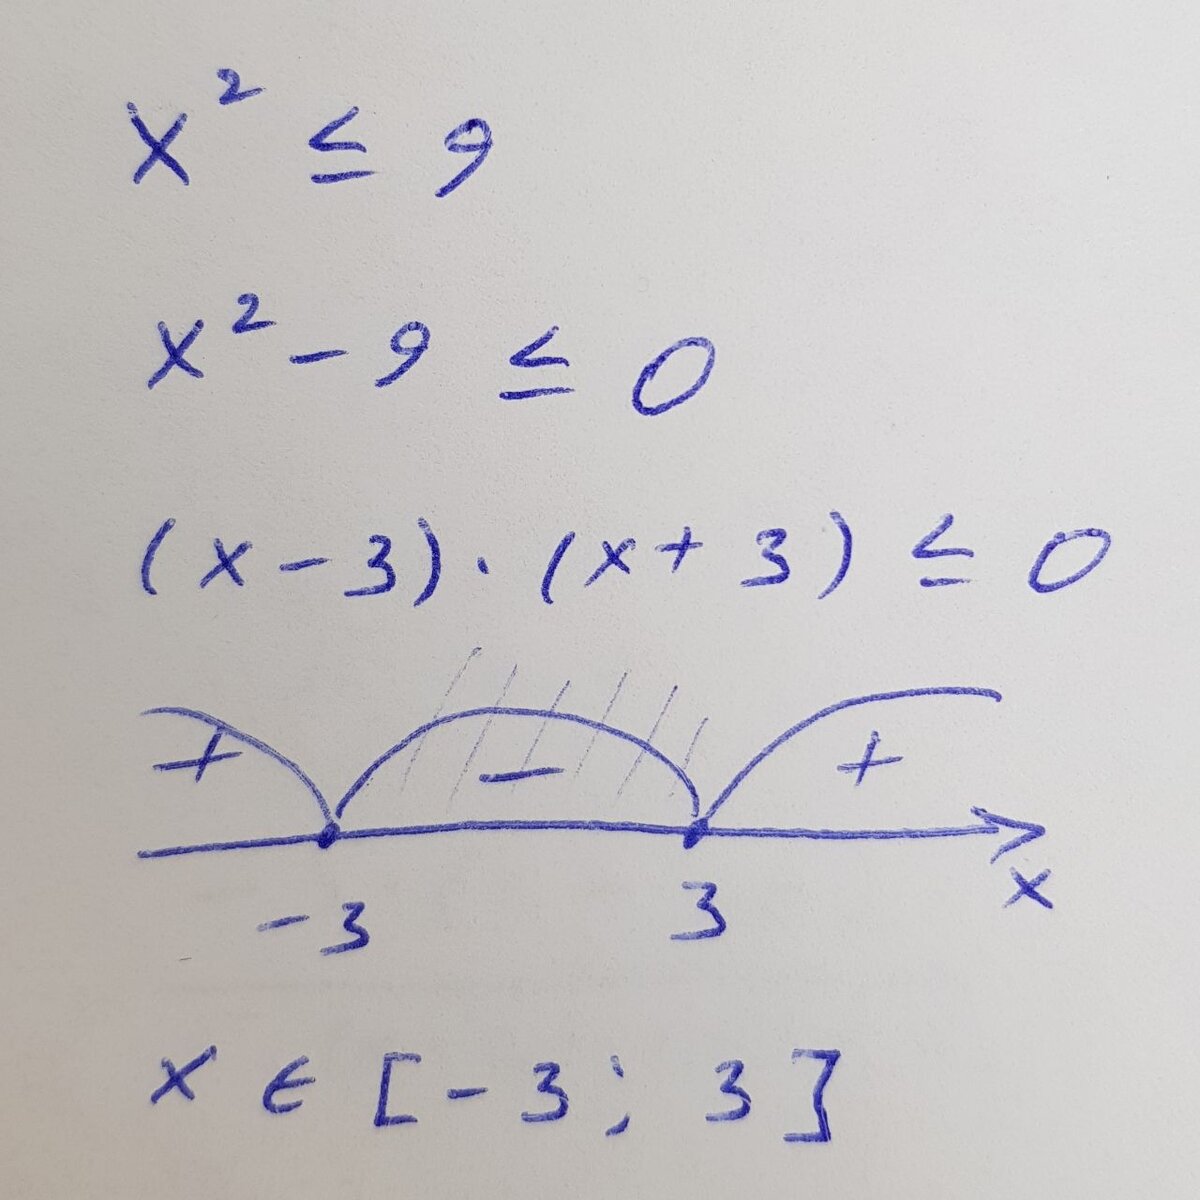 x² ≤ 9
x² - 9 ≤ 0
(x - 3) · (x + 3) ≤ 0
+ − +
-3 3 x
x ∈ [-3; 3]